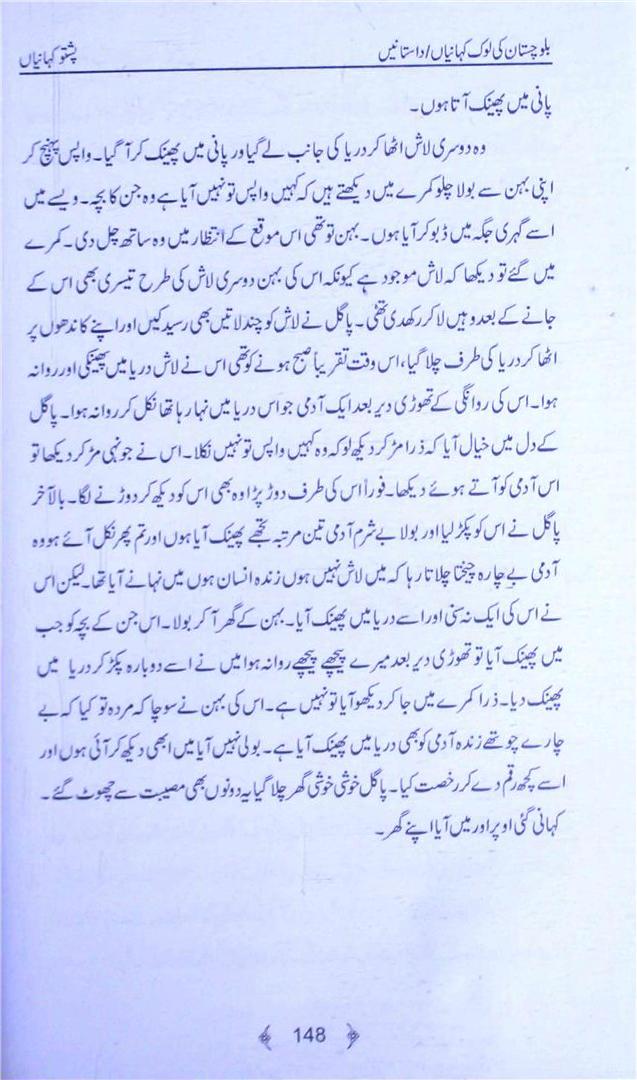 بلوچستان کی لوک کہانیاں/داستانیں
پشتو کہانیاں
پانی میں پھینک آتا ہوں۔
وہ دوسری لاش اٹھا کر دریا کی جانب لے گیا ور پانی میں پھینک کر آ گیا۔ واپس پہنچ کر
اپنی بہن سے بولا چلو کمرے میں دیکھتے ہیں کہ کہیں واپس تو نہیں آیا ہے وہ جن کا بچہ۔ ویسے میں
اسے گہری جگہ میں ڈبو کر آیا ہوں۔ بہن تو تھی اس موقع کے انتظار میں وہ ساتھ چل دی۔ کمرے
میں گئے تو دیکھا کہ لاش موجود ہے کیونکہ اس کی بہن دوسری لاش کی طرح تیسری بھی اس کے
جانے کے بعد وہیں لا کر رکھ دی تھی۔ پاگل نے لاش کو چند لاتیں بھی رسید کیں اور اپنے کاندھوں پر
اٹھا کر دریا کی طرف چلا گیا، اس وقت تقریباً صبح ہونے کو تھی اس نے لاش دریا میں پھینکی اور روانہ
ہوا۔ اس کی روانگی کے تھوڑی دیر بعد ایک آدمی جو اس دریا میں نہا رہا تھا نکل کر روانہ ہوا۔ پاگل
کے دل میں خیال آیا کہ ذرا مڑ کر دیکھ لو کہ وہ کہیں واپس تو نہیں نکلا۔ اس نے جونہی مڑ کر دیکھا تو
اس آدمی کو آتے ہوئے دیکھا۔ فوراً اس کی طرف دوڑ پڑا وہ بھی اس کو دیکھ کر دوڑنے لگا۔ بالآخر
پاگل نے اس کو پکڑ لیا اور بولا بے شرم آدمی تین مرتبہ تجھے پھینک آیا ہوں اور تم پھر نکل آئے ہو وہ
آدمی بے چارہ چیختا چلاتا رہا کہ میں لاش نہیں ہوں زندہ انسان ہوں میں نہانے آیا تھا۔ لیکن اس
نے اس کی ایک نہ سنی اور اسے دریا میں پھینک آیا۔ بہن کے گھر آ کر بولا۔ اس جن کے بچہ کو جب
میں پھینک آیا تو تھوڑی دیر بعد میرے پیچھے پیچھے روانہ ہوا میں نے اسے دوبارہ پکڑ کر دریا میں
پھینک دیا۔ ذرا کمرے میں جا کر دیکھو آیا تو نہیں ہے۔ اس کی بہن نے سوچا کہ مردہ تو کیا کہ بے
چارے چوتھے زندہ آدمی کو بھی دریا میں پھینک آیا ہے۔ بولی نہیں آیا میں ابھی دیکھ کر آئی ہوں اور
اسے کچھ رقم دے کر رخصت کیا۔ پاگل خوشی خوشی گھر چلا گیا یہ دونوں بھی مصیبت سے چھوٹ گئے۔
کہانی گئی اوپر اور میں آیا اپنے گھر۔
148